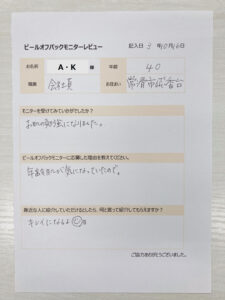 ピールオフパックモニターレビュー 記入日 3年10月16日
お名前 A・K 様 年齢 40
職業 会社員 お住まい 常滑市 香台
モニターを受けてみていかがでしたか？
お肌の勉強になりました。
ピールオフパックモニターに応募した理由を教えてください。
年齢 気になっていたので。
身近な人に紹介していただけるとしたら、何と言って紹介してもらえますか？
キレイになるよ
ご協力ありがとうございました。